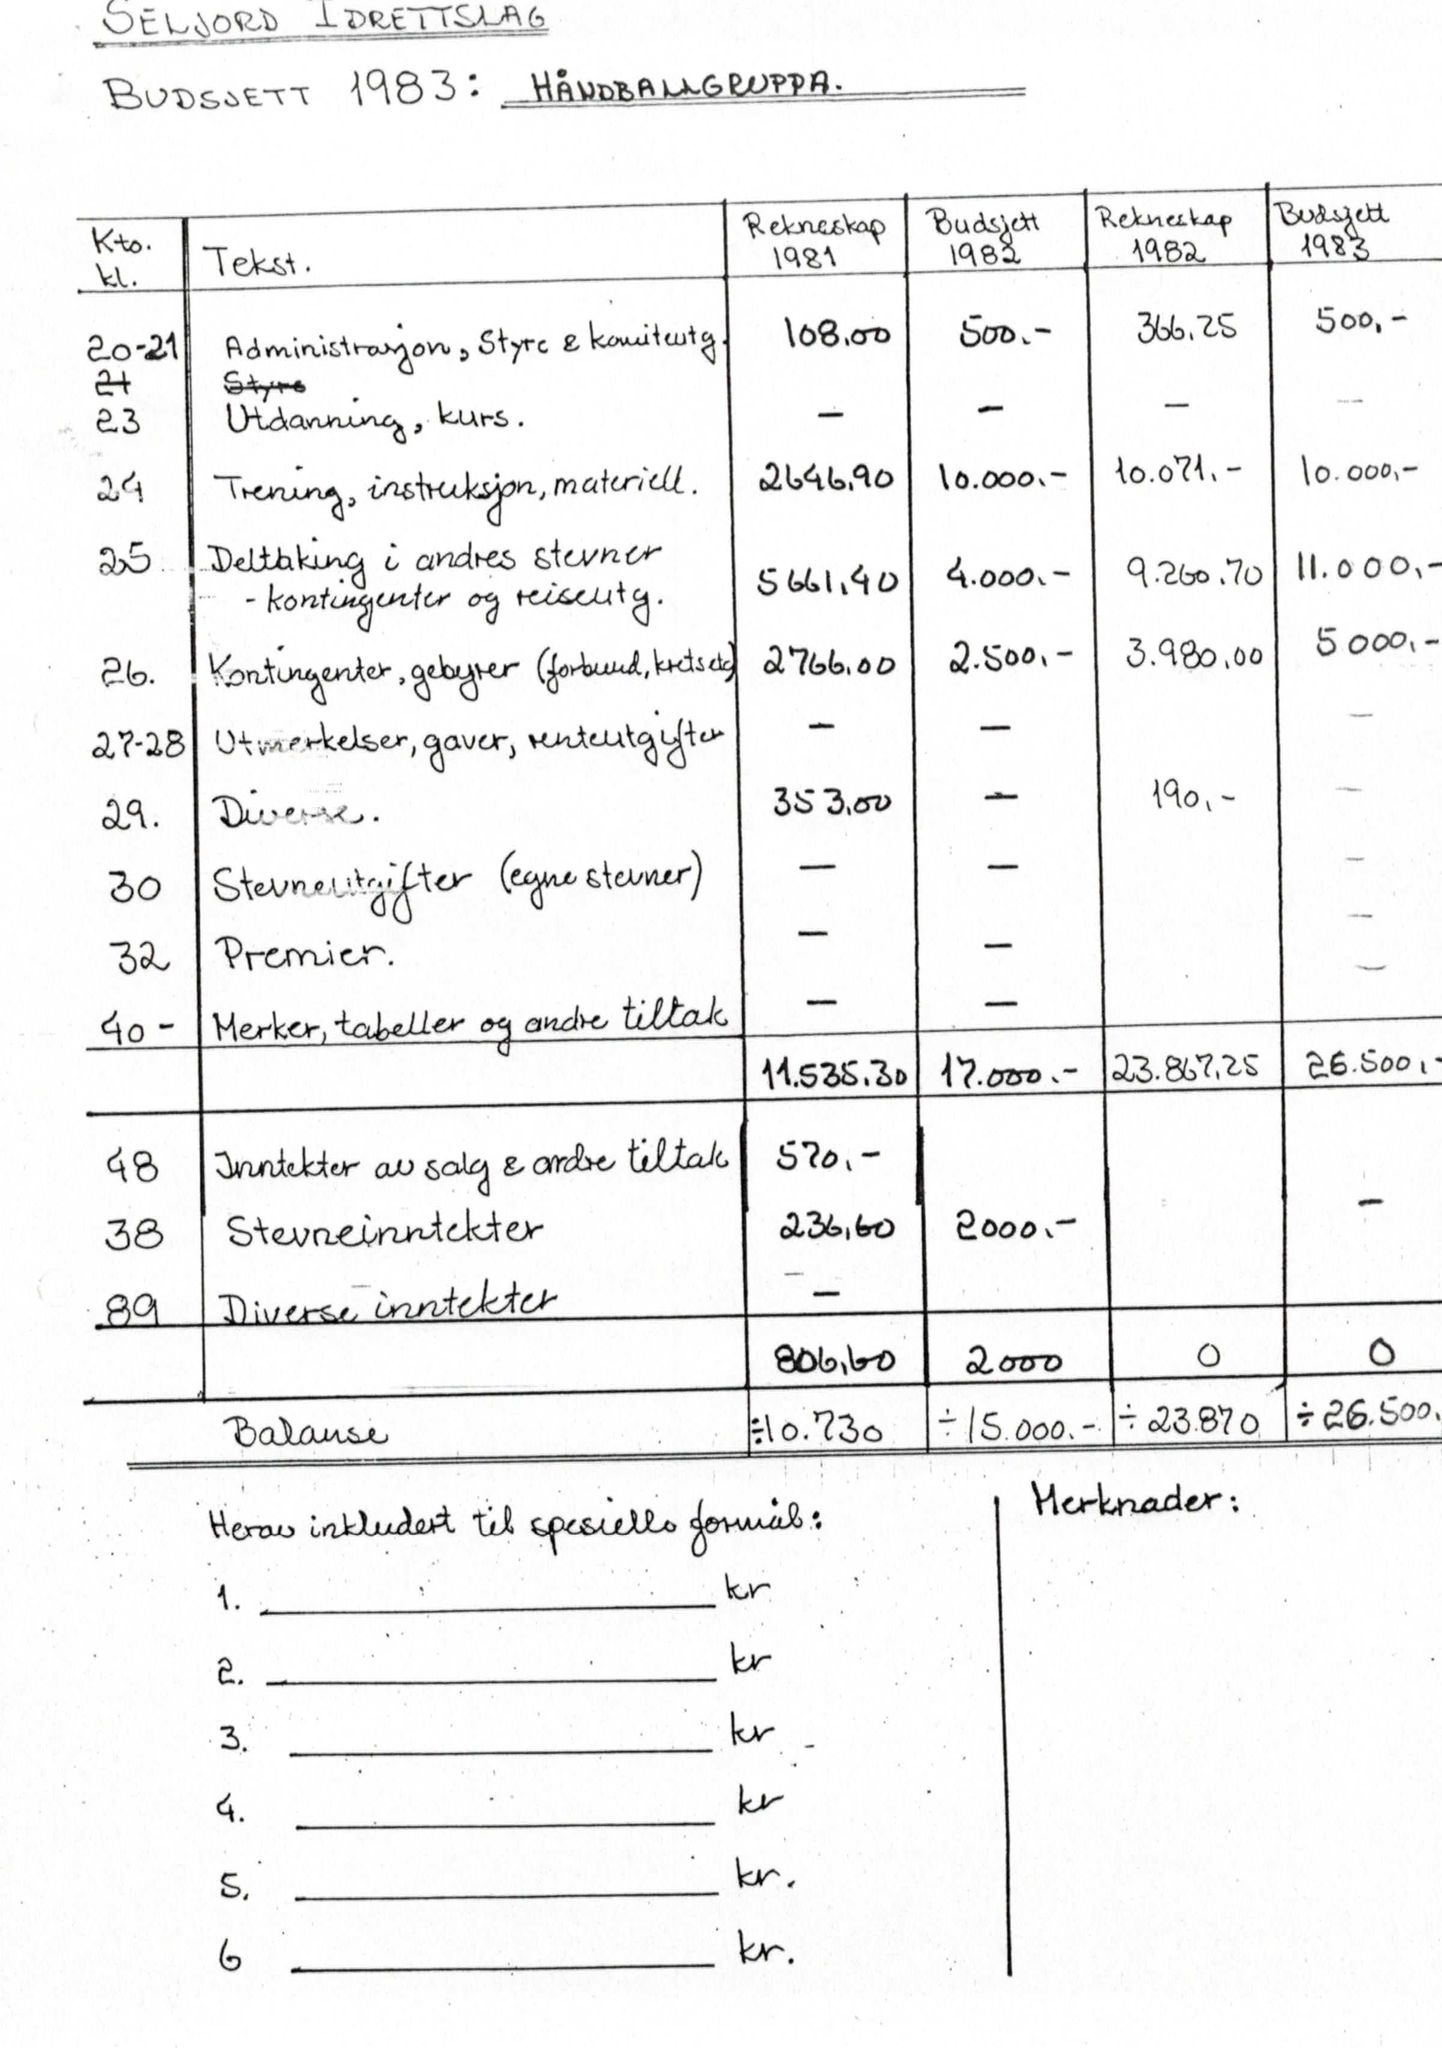 SELJORD IDRETTSLAG
BUDSJETT 1983: HÅNDBALLGRUPPA.
Kto. kl. Tekst. Rekneskap 1981 Budsjett 1982 Rekneskap 1982 Budsjett 1983
20-21 Administrasjon, Styre & komiteutg. 108,00 500.- 366,25 500,-
21 Styre
23 Utdanning, kurs. — — — —
24 Trening, instruksjon, materiell. 2646,90 10.000.- 10.071.- 10.000,-
25 Deltaking i andres stevner
- kontingenter og reiseutg. 5661,40 4.000.- 9.260.70 11.000,-
26. Kontingenter, gebyrer (forbund, krets etc) 2766,00 2.500,- 3.980,00 5000,-
27-28 Utmerkelser, gaver, renteutgifter — — —
29. Diverse. 353,00 — 190,- —
30 Stevneutgifter (egne stevner) — — —
32 Premier. — — —
40- Merker, tabeller og andre tiltak — — —
11.535.30 17.000.- 23.867,25 26.500,-
48 Inntekter av salg & andre tiltak 570.-
38 Stevneinntekter 236,60 2000.- —
89 Diverse inntekter —
806,60 2000 0 0
Balanse ÷10.730 ÷15.000.- ÷23.870 ÷26.500.
Herav inkludert til spesielle formål: Merknader:
1. kr
2. kr
3. kr
4. kr
5. kr.
6 kr.